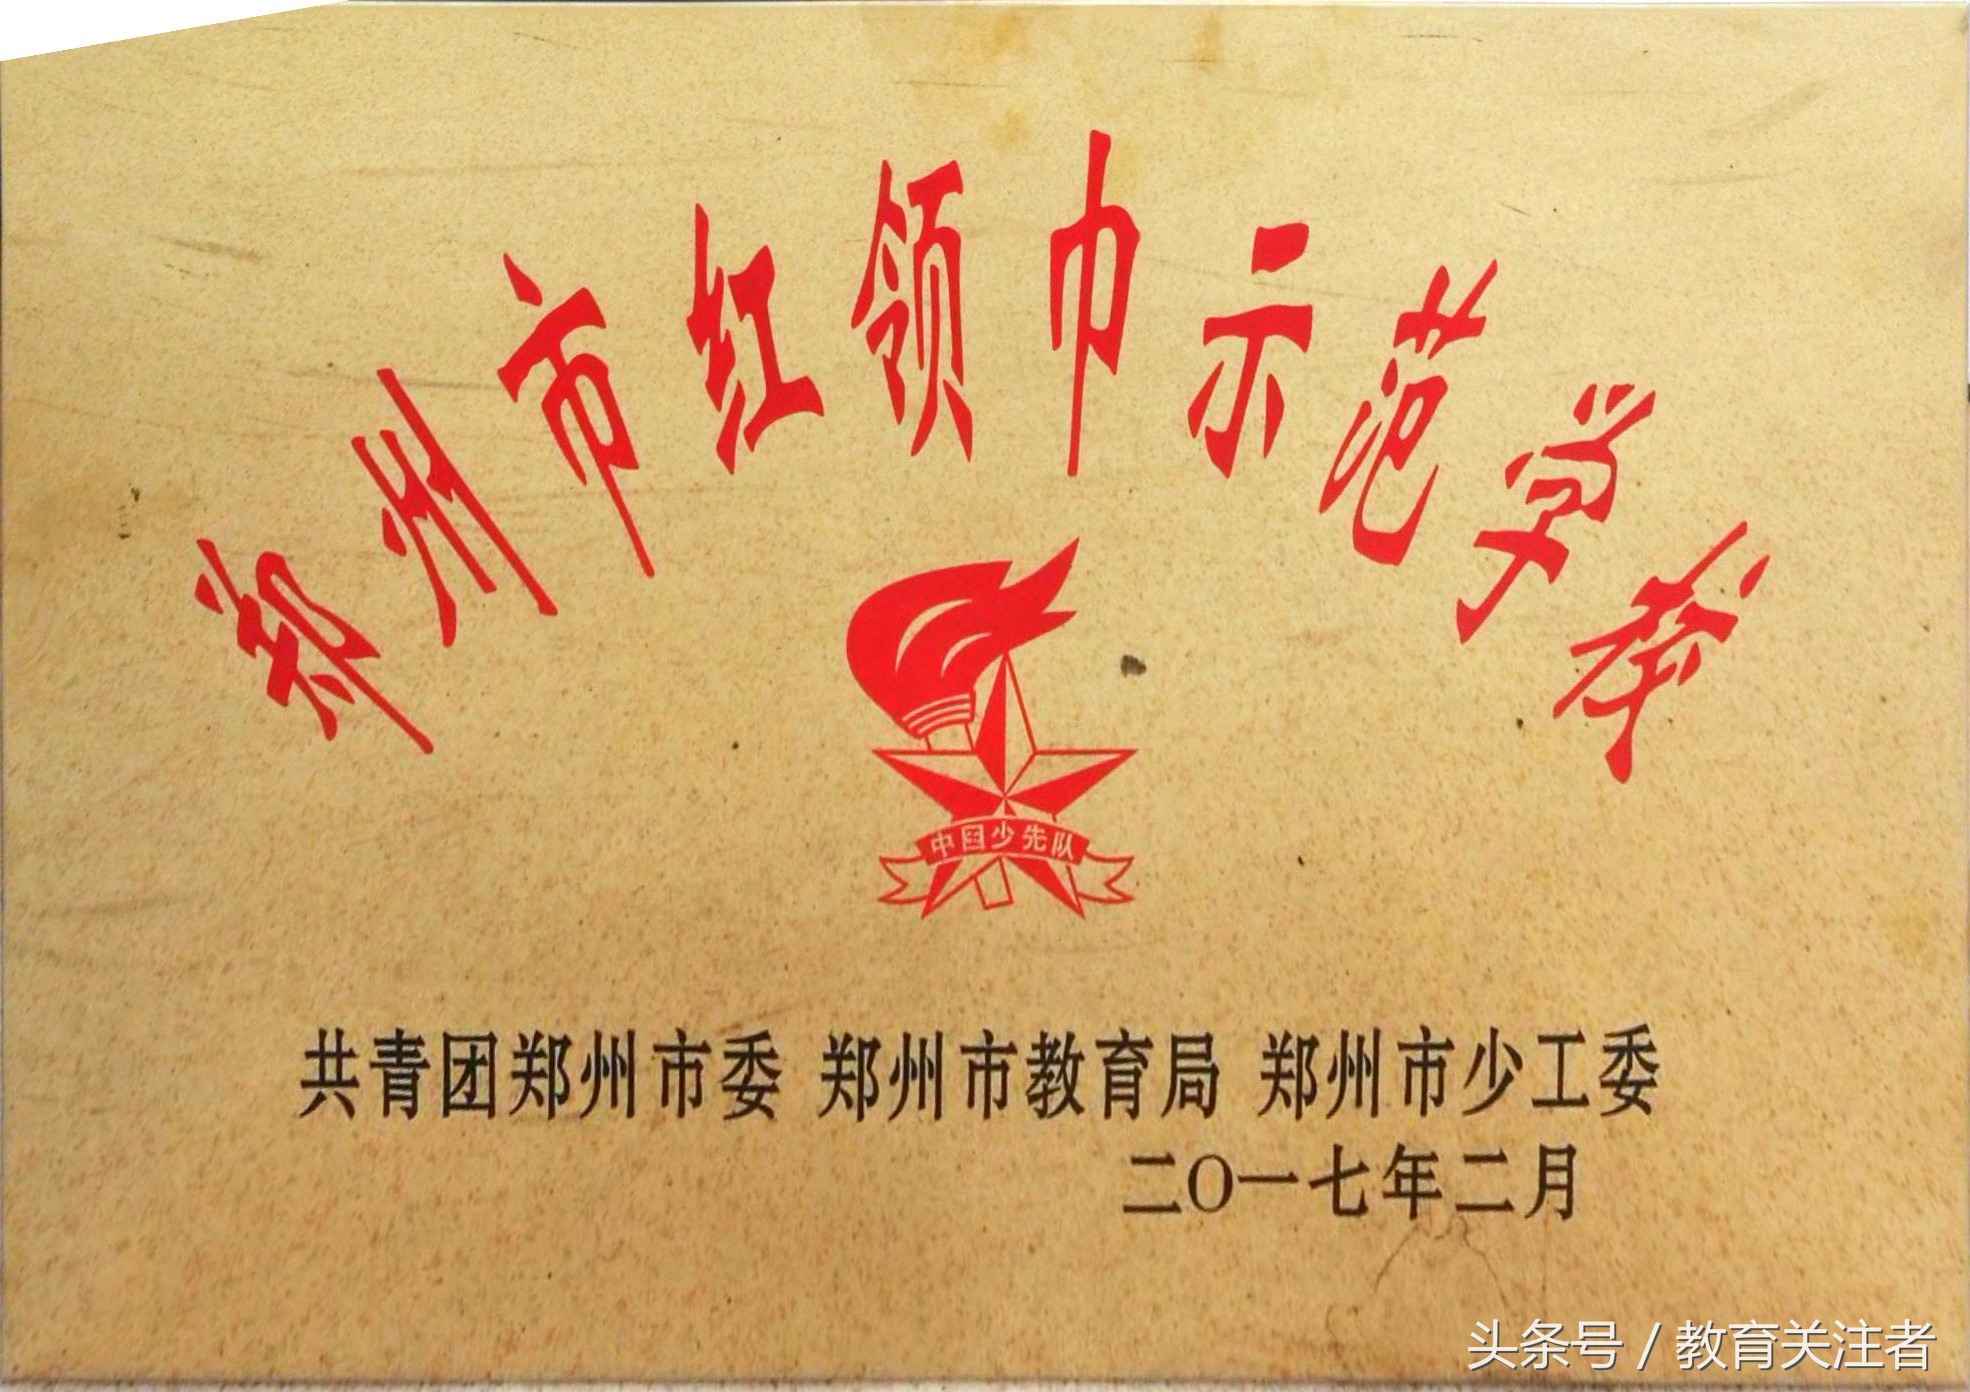 郑州市红领巾示范学校
中国少先队
共青团郑州市委 郑州市教育局 郑州市少工委
二〇一七年二月
头条号 / 教育关注者